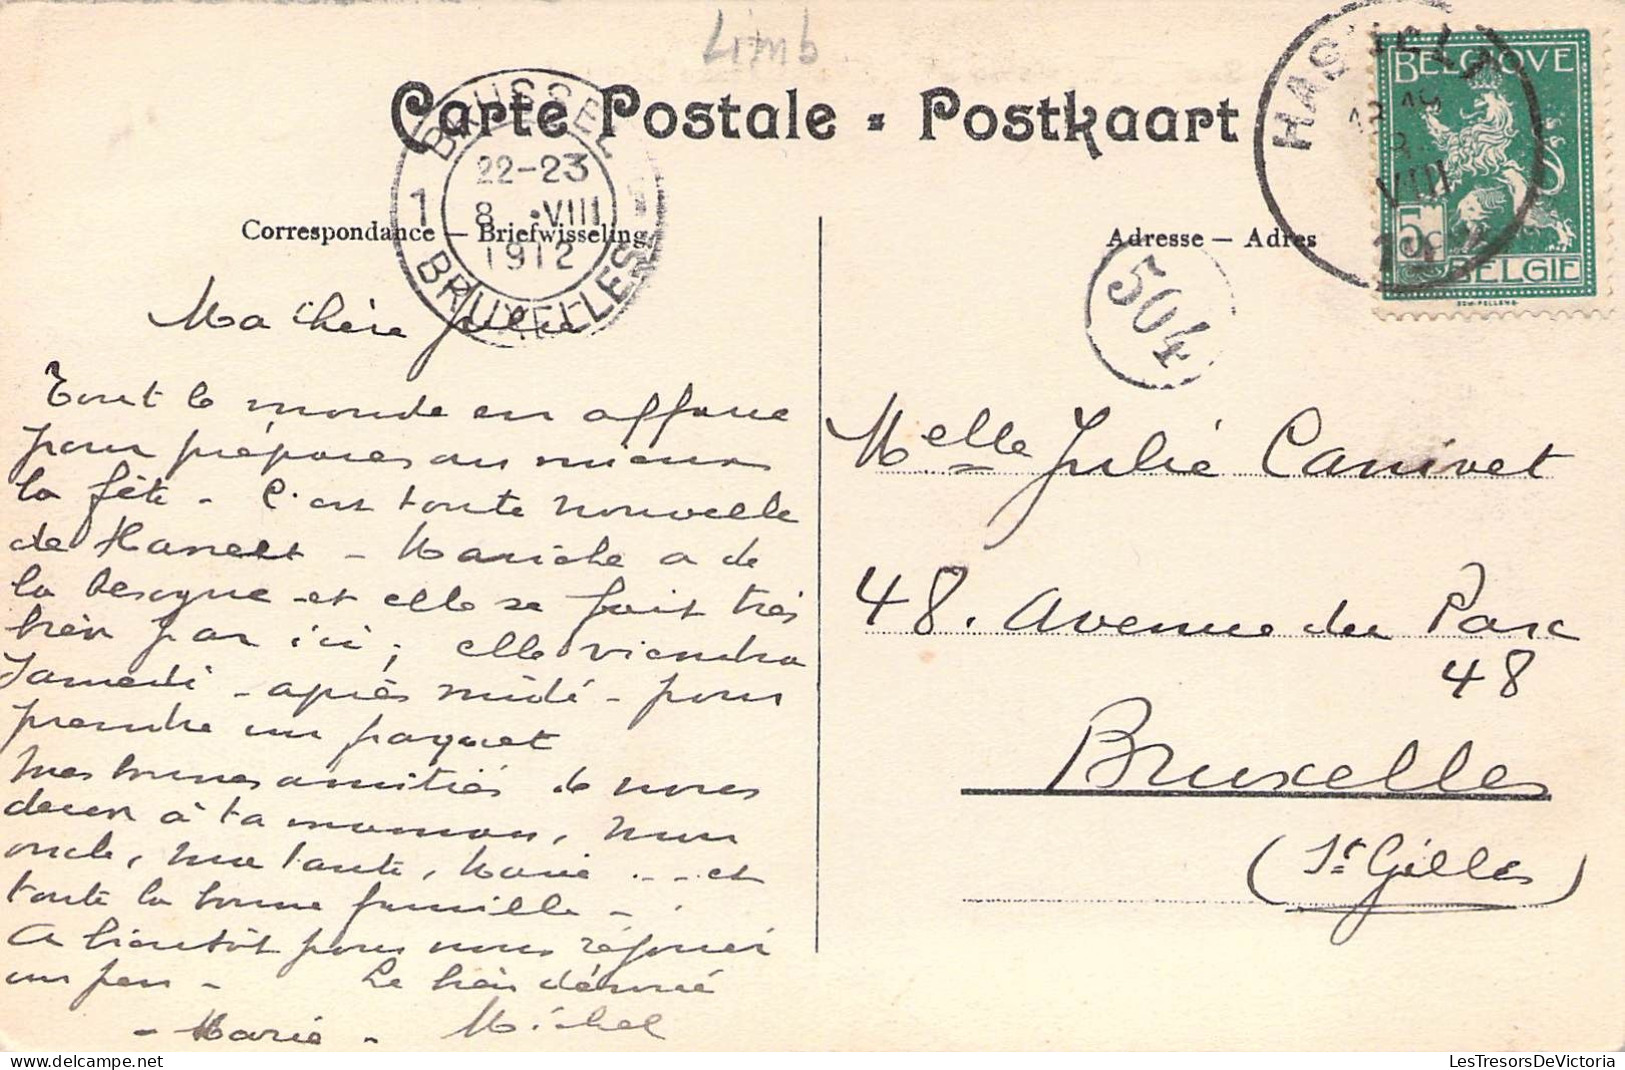 Limb
Carte Postale - Postkaart
BRUSSEL
22-23
1 8 VIII
1912
BRUXELLES
HASSELT
VIII
BELGIQUE
5c
BELGIE
Correspondance — Briefwisseling
Adresse — Adres
504
Ma chère Julie
Tout le monde en affaire
pour préparer au mieux
la fête - C'est toute nouvelle
de Hasselt - Mariche a de
la besogne et elle se fait très
bien par ici ; elle viendra
Samedi - après midi - pour
prendre un paquet
Mes bonnes amitiés de nous
deux à ta maman, mon
oncle, ma tante, Marie . - - et
toute la bonne famille - .
A bientôt pour nous réjouir
un peu - Le bien dévoué
- Marie - Michel
Melle Julie Canivet
48. Avenue du Parc
48
Bruxelles
(St Gilles)
LesTresorsDeVictoria